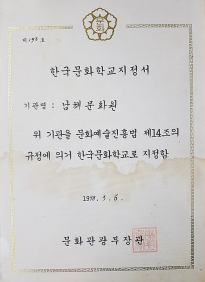 한국문화학교지정서
기관명 : 남해문화원
위 기관을 문화예술진흥법 제14조의
규정에 의거 한국문화학교로 지정함
3. 6.
문화관광부장관